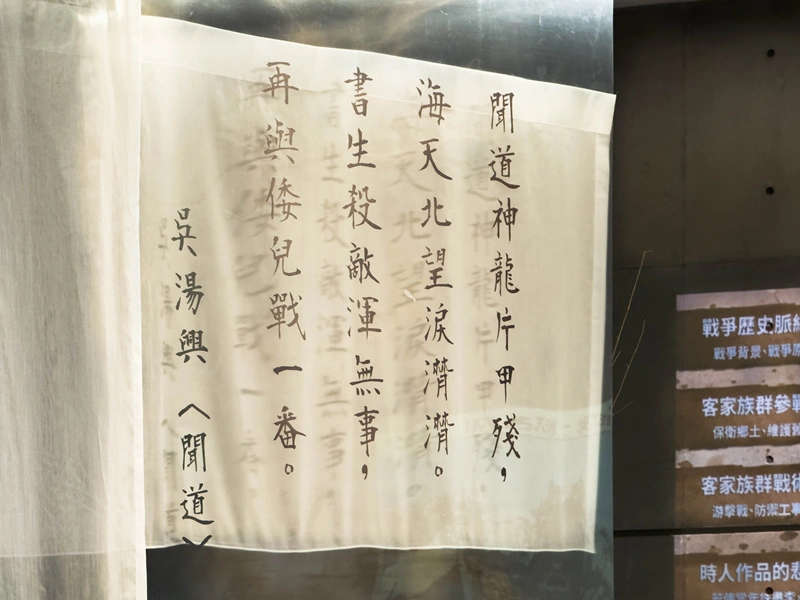 聞道神龍片甲殘，
海天北望淚潸潸。
書生殺敵渾無事，
再與倭兒戰一番。
吳湯興〈聞道〉
戰爭歷史脈
戰爭背景、戰爭
客家族群參戰
保衛鄉土、維護
客家族群戰術
游擊戰、防禦工事
時人作品的悲